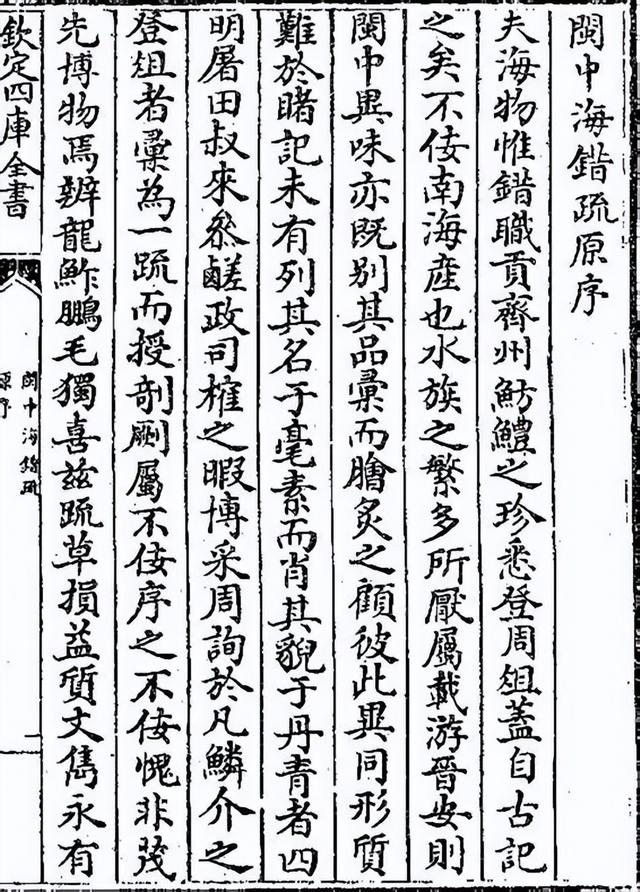 閩中海錯疏原序
夫海物惟錯職貢齊州魴鱧之珍悉登周俎蓋自古記
之矣不佞南海產也水族之繁多所厭屬載游晉安則
閩中異味亦既别其品彙而膾炙之顧彼此異同形質
難於睹記未有列其名于毫素而肖其貌于丹青者四
明屠田叔來叅鹺政司榷之暇博采周詢於凡鱗介之
登俎者彙為一疏而授剞劂屬不佞序之不佞愧非茂
先博物焉辨龍鮓鵬毛獨喜兹疏草損益質文雋永有
欽定四庫全書
閩中海錯疏
原序